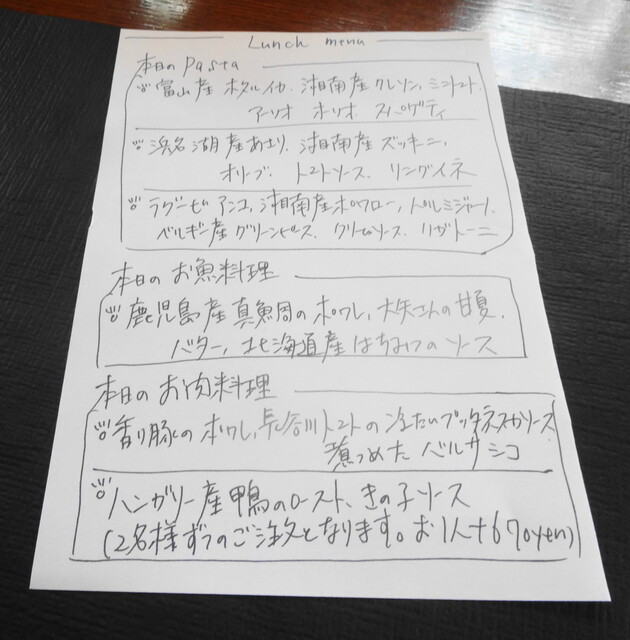 Lunch menu
本日の Pasta
富山産 ホタルイカ、湘南産 クレソン、ミニトマト、
アーリオ オーリオ スパゲティ
浜名湖産あさり、湘南産ズッキーニ、
オリーブ、トマトソース、リングイネ
ラグービアンコ、湘南産ポワロー、パルミジャーノ、
ベルギー産グリーンピース、クリームソース、リガトーニ
本日の お魚料理
鹿児島産 真鯛のポワレ、大矢さんの甘夏、
バター、北海道産はちみつのソース
本日の お肉料理
香り豚のポワレ、長谷川トマトの冷たいプッタネスカソース、
煮つめたバルサミコ
ハンガリー産鴨のロースト、きの子ソース
(2名様ずつのご注文となります。お1人+670yen)